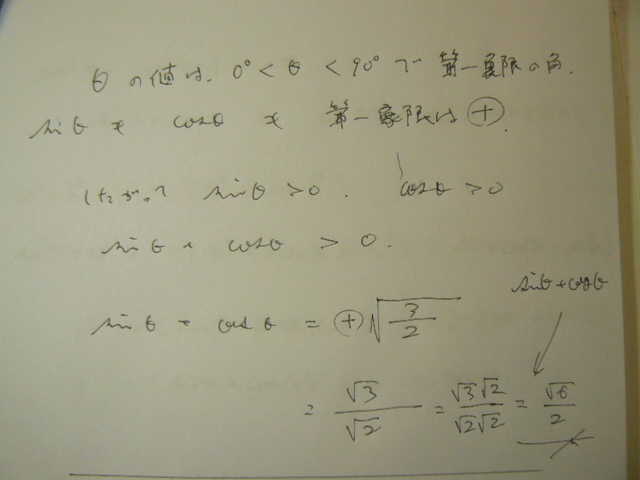 θの値は、0°<θ<90°で第一象限の角.
sinθも cosθも 第一象限は⊕.
したがって sinθ>0. cosθ>0
sinθ+cosθ>0.
sinθ+cosθ
sinθ+cosθ=⊕√(3/2)
=√3/√2=√3√2/√2√2=√6/2